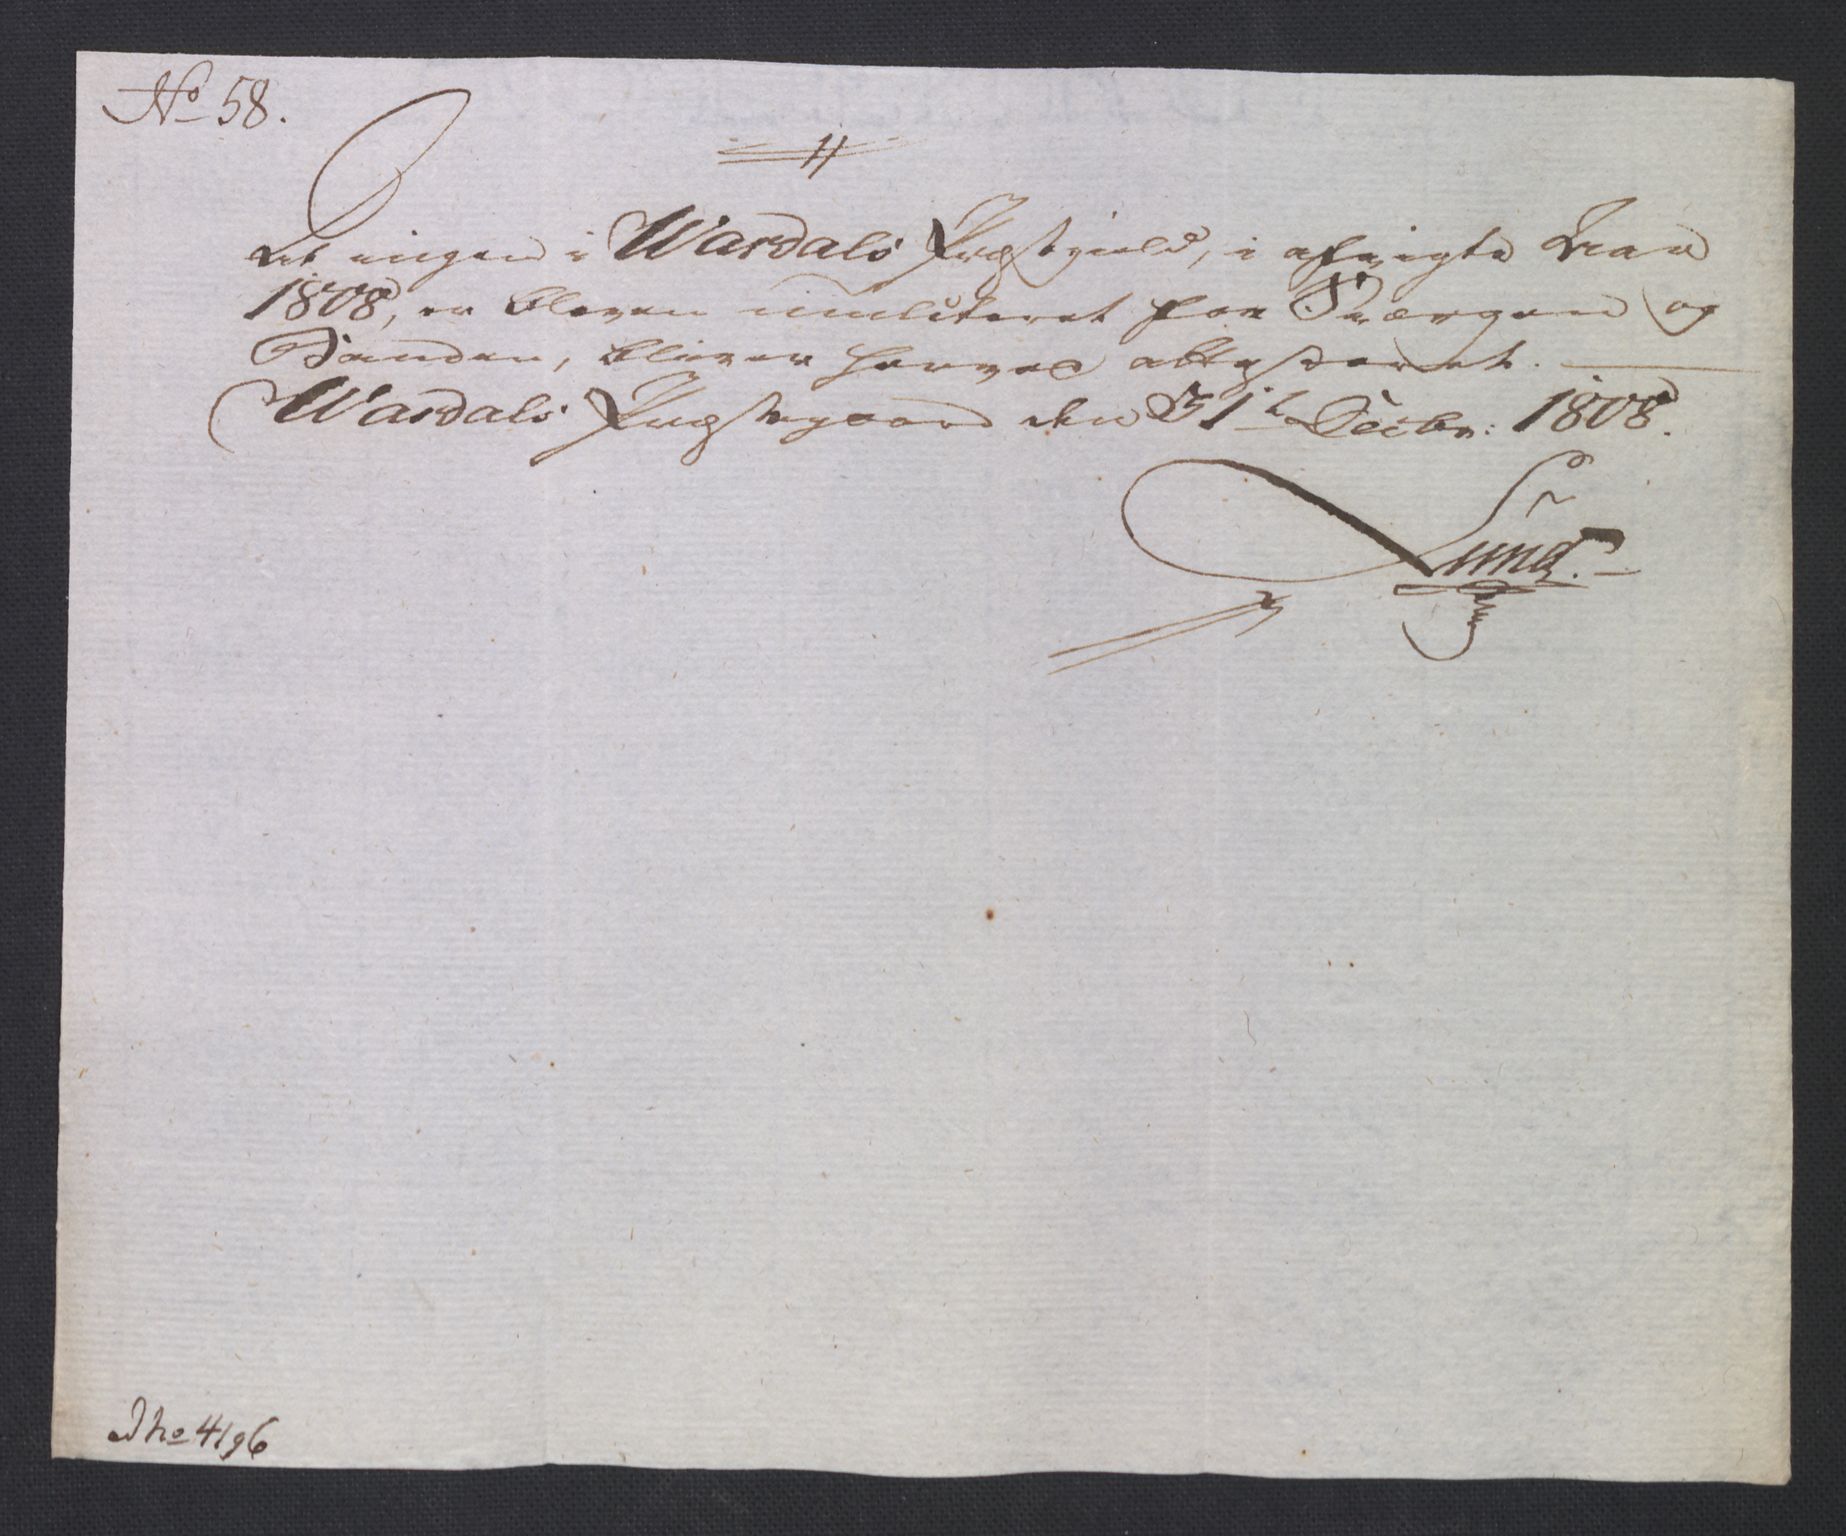 No 58.
At ingen i Wærdals Præstegield, i afvigte Aar
1808, er bleven mulcteret for Sværgen og
Banden, bliver herved attesteret.
Wærdals Præstegaard den 31te Decbr: 1808.
Lund.
Ad No 4196